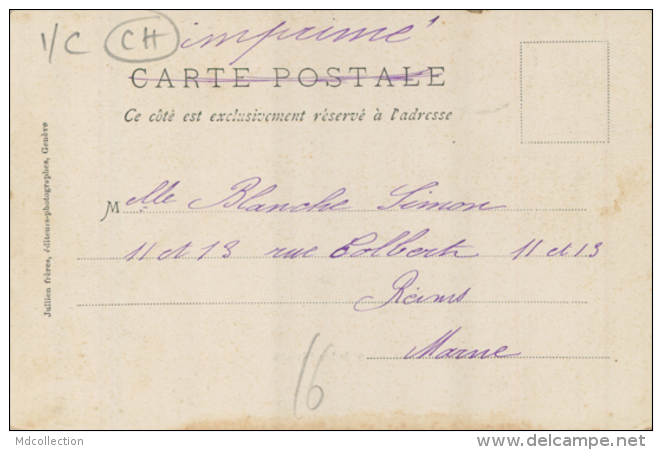 1/C CH imprimé
CARTE POSTALE
Ce côté est exclusivement réservé à l'adresse
Mlle Blanche Simon
11 et 13 rue Colbert 11 et 13
Reims
Marne
16
Jullien frères, éditeurs-photographes, Genève
Mdcollection
www.delcampe.net